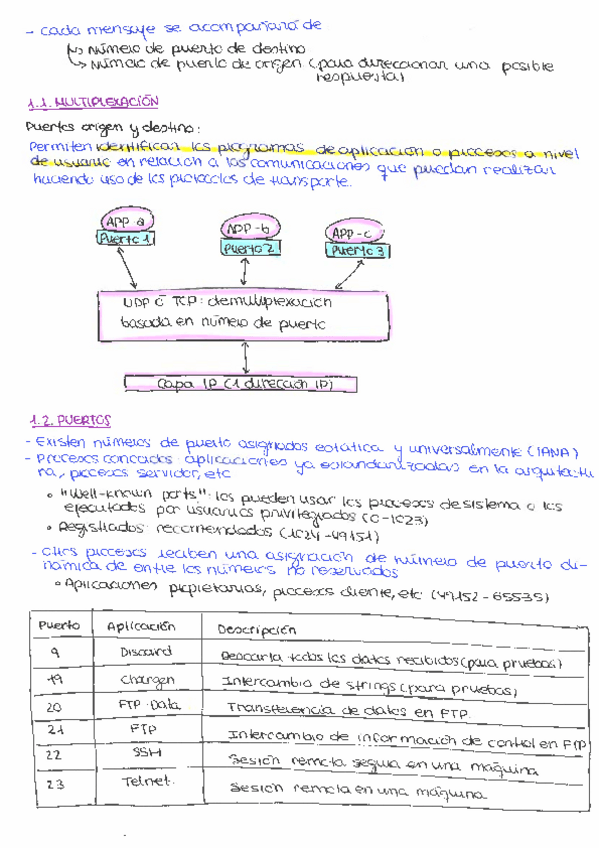 - Cada mensaje se acompañará de
↳ Número de puerto de destino
↳ Número de puerto de origen (para direccionar una posible
respuesta)
1.1. MULTIPLEXACIÓN
Puertos origen y destino:
Permiten identificar los programas de aplicación o procesos a nivel
de usuario en relación a las comunicaciones que puedan realizar
haciendo uso de los protocolos de transporte.
APP-a
Puerto 1
APP-b
Puerto 2
APP-c
Puerto 3
UDP o TCP: demultiplexación
basada en número de puerto
Capa IP (1 dirección IP)
1.2. PUERTOS
- Existen números de puerto asignados estática y universalmente (IANA)
- Procesos conocidos: aplicaciones ya estandarizadas en la arquitectu
ra, procesos servidor, etc
• "Well-known ports": los pueden usar los procesos de sistema o los
ejecutados por usuarios privilegiados (0-1023)
• Registrados: recomendados (1024-49151)
- Otros procesos reciben una asignación de número de puerto di-
námica de entre los números no reservados
• Aplicaciones propietarias, procesos cliente, etc (49152-65535)
Puerto Aplicación Descripción
9 Discard Descarta todos los datos recibidos (para pruebas)
19 Chargen Intercambio de strings (para pruebas)
20 FTP-Data Transferencia de datos en FTP
21 FTP Intercambio de información de control en FTP
22 SSH Sesión remota segura en una máquina
23 Telnet Sesión remota en una máquina